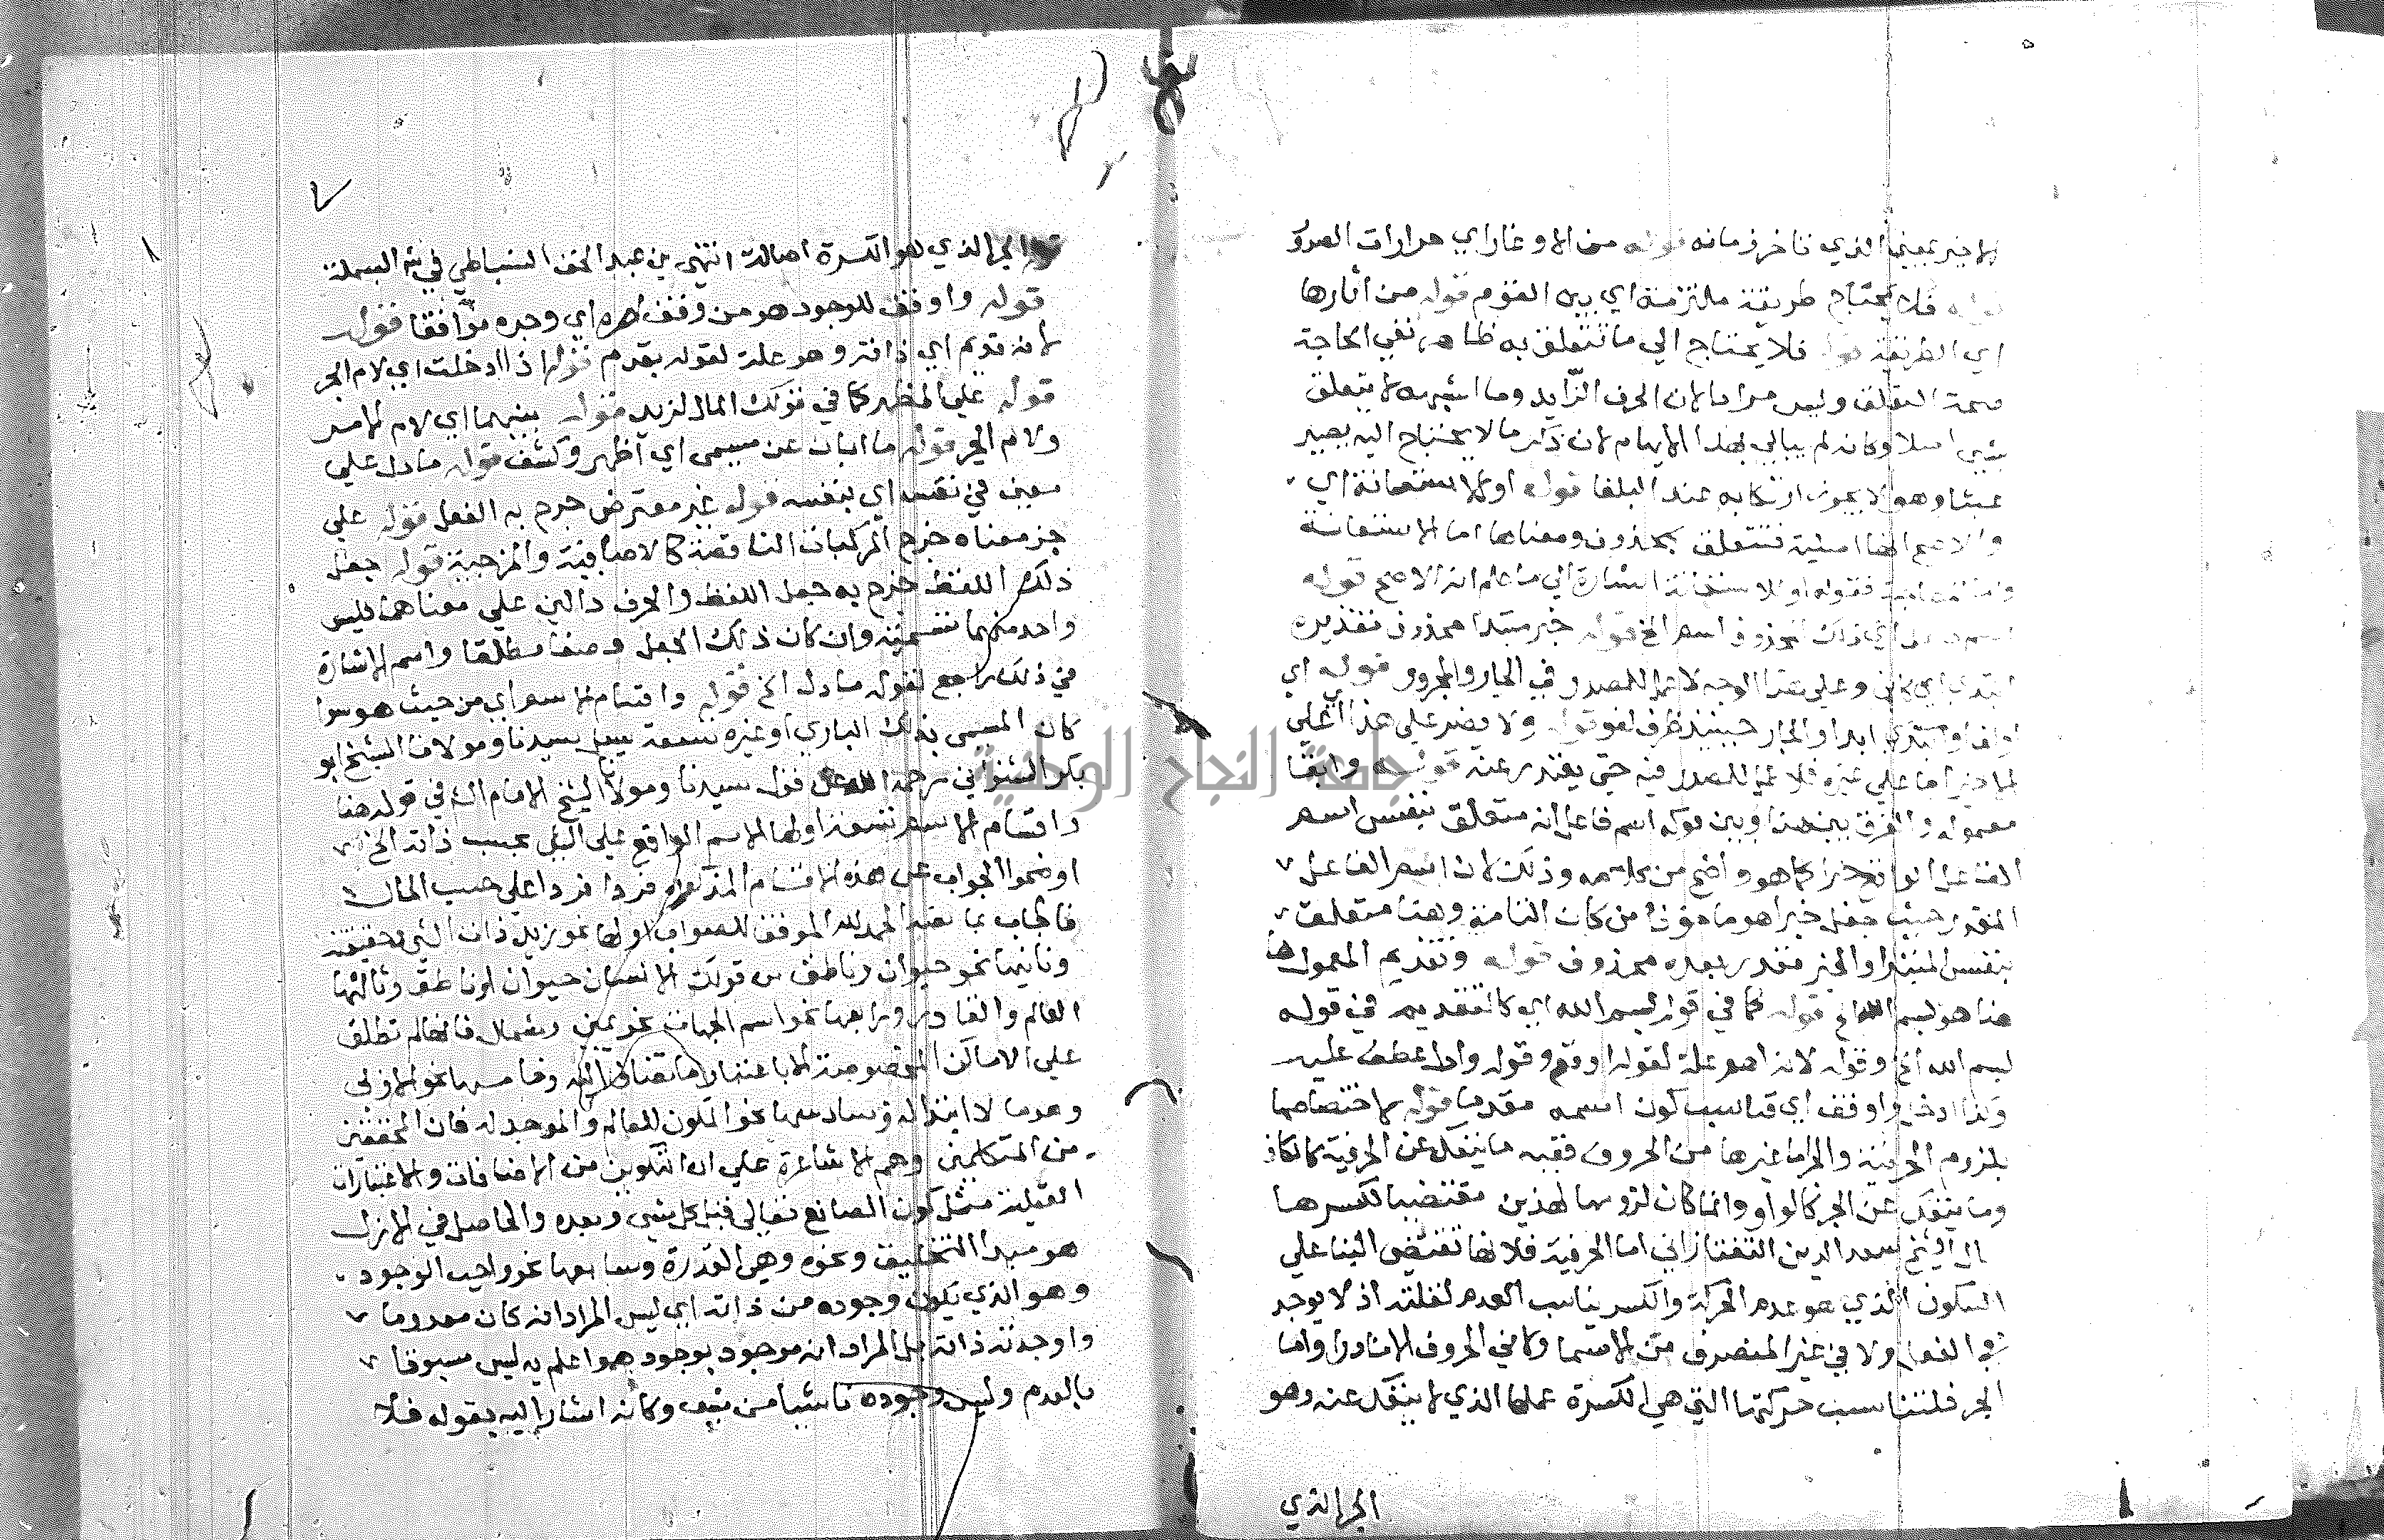 الاخير بمعنى الذي تاخر زمانه قوله من الاوغار اي حرارات الصدور
فلا يحتاج طريقة ملتزمة اي بين القوم قوله من اثارها
اي الطريقة قوله فلا يحتاج الي ما تتعلق به ظاهره نفي الحاجة
صحة التعلق وليس مرادا لان الحرف الزايد وما اشبهه لا يتعلق
بشي اصلا وكانه لم يبالي بهذا الايهام لان ذكر ما لا يحتاج اليه يصير
عبثا وهو لا يجوز ارتكابه عند البلغا قوله او للاستعانة اي
والاصح انها اصلية فتتعلق بمحذوف ومعناها اما الاستعانة
فقوله او للاستعانة اشارة الي ما علم انه الاصح قوله
اي ذلك المحذوف اسم الخ قوله خبر مبتدا محذوف تقديره
ابتداي كاين وعلي هذا الوجه لا عمل للمصدر في الجار والمجرور قوله اي
ابدا والجار حينيذ ظرف لغو قوله ولا يضر علي هذا اي علي
فلا عمل للمصدر فيه حتي يعتذر عنه قوله وابقا
معموله والفرق بين هذا وبين قوله اسم فاعل انه متعلق بنفس اسم
الفاعل الواقع خبرا كما هو واضح من كلامه وذلك لان اسم الفاعل
المقدر حيث جعل خبرا هو ماخوذ من كان التامة وهنا متعلق
بنفس المبتدا والخبر مقدر بعده محذوف قوله وتقديم المعمول هنا
هنا هو بسم الله الخ قوله كما في قوله بسم الله اي كالتقديم في قوله
بسم الله الخ وقوله لانه اهم علة لقوله اوقع وقوله وادل عطف عليه
وكذا ادخل واوفق اي قناسب كون اسمه مقدما قوله لاختصاصها
بلزوم الحرفية والجر اما غيرها من الحروف فقيه ما ينفك عن الحرفية كالكاف
وما ينفك عن الجر كالواو وانما كان لزومها لهذين مقتضيا لكسرها
قال الشيخ سعد الدين التفتازاني اما الحرفية فلانها تقتضي البنا علي
السكون الذي هو عدم الحركة والكسر يناسب العدم لقلته اذ لا يوجد
في الفعل ولا في غير المنصرف من الاسما ولا في الحروف الا نادرا واما
الجر فلتناسب حركتها التي هي الكسرة عملها الذي لا ينفك عنه وهو
الجر الذي
الجر الذي هو الكسرة اصالة انتهي من عبد الحق السنباطي في شرح البسملة
قوله واوفق للوجود هو من وفقت امره اي وجده موافقا قوله
لانه قديم اي ذاته وهو علة لقوله يقدم قوله اذا ادخلت اي لام الجر
قوله علي المظهر كما في قولك المال لزيد قوله بينهما اي لام الامر
ولام الجر قوله ما ابان عن مسمى اي اظهر وكشف قوله ما دل علي
معين في نفسه اي بنفسه قوله غير معترض خرج به الفعل قوله علي
جز معناه خرج المركبات الناقصة كالاضافية والمزجية قوله جعل
ذلك اللفظ خرج به جعل اللفظ والحرف دالين علي معناهما فليس
واحد منهما تسمية وان كان ذلك الجعل وصفا مطلقا واسم الاشارة
في ذلك راجع لقوله ما دل الخ قوله واقسام الاسم اي من حيث هو سوا
كان المسمى بذلك الباري او غيره تسعة سيل سيدنا ومولانا الشيخ ابو
بكر الشنواني رحمه الله عن قول سيدنا ومولانا الشيخ الامام الخ في قوله هنا
واقسام الاسم تسعة اولها الاسم الواقع علي الشي بحسب ذاته الخ
اوضحوا الجواب عن هذه الاقسام المذكورة فردا فردا علي حسب الحال
فاجاب بما نصه الحمد لله الموفق للصواب اولها نحو زيد ذات الشي وحقيقته
وثانيها نحو حيوان وناطق من قولك الانسان حيوان او ناطق وثالثها
العالم والقادر ورابعها نحو اسم الجهات نحو يمين وشمال فانها لم تطلق
علي الاماكن المخصوصة الا باعتبار ما تضاف اليه وخامسها نحو الازلي
وهو ما لا ابتدا له وسادسها نحو المكون للعالم والموجد له فان المحققين
من المتكلمين وهم الاشاعرة علي ان التكوين من الاضافات والاعتبارات
العقلية مثل كون الصانع تعالي قبل كل شي وبعده والحاصل في الازل
هو مبدا التخليق ونحوه وهي القدرة وسابعها نحو واجب الوجود
وهو الذي يكون وجوده من ذاته اي ليس المراد انه كان معدوما
واوجدته ذاته بل المراد انه موجود بوجود هو اعلم به ليس مسبوقا
بالعدم وليس وجوده ناشيا من شي وكانه اشار اليه بقوله فلا
جامعة النجاح الوطنية